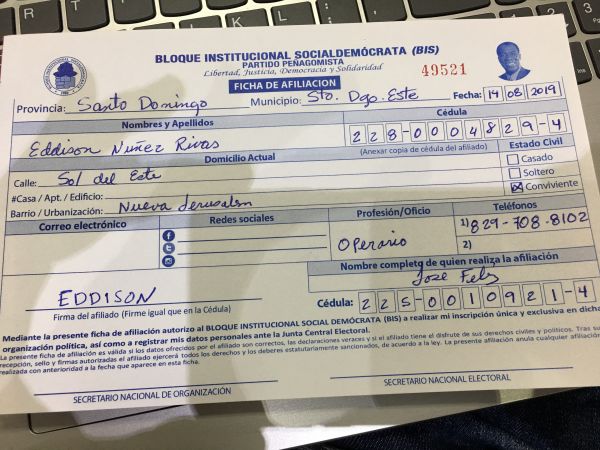 BLOQUE INSTITUCIONAL SOCIALDEMÓCRATA (BIS)
PARTIDO PEÑAGOMISTA
Libertad, Justicia, Democracia y Solidaridad
49521
FICHA DE AFILIACION
Provincia: Santo Domingo Municipio: Sto. Dgo. Este Fecha: 14 08 2019
Nombres y Apellidos Cédula
Eddison Nuñez Rivas 228-0004829-4
(Anexar copia de cédula del afiliado)
Domicilio Actual Estado Civil
Calle: Sol del Este Casado
#Casa / Apt. / Edificio: Soltero
Barrio / Urbanización: Nueva Jerusalen Conviviente
Correo electrónico Redes sociales Profesión/Oficio Teléfonos
Operario 1) 829-708-8102
2)
Nombre completo de quien realiza la afiliación
Jose Feliz
EDDISON Cédula: 225-0010921-4
Firma del afiliado (Firme igual que en la Cédula)
Mediante la presente ficha de afiliación autorizo al BLOQUE INSTITUCIONAL SOCIAL DEMÓCRATA (BIS) a realizar mi inscripción única y exclusiva en dicha
organización política, así como a registrar mis datos personales ante la Junta Central Electoral.
La presente ficha de afiliación es válida si los datos ofrecidos por el afiliado son correctos, las declaraciones veraces y si el afiliado tiene el disfrute de sus derechos civiles y políticos. Tras su
recepción, sello y firmas autorizadas el afiliado ejercerá todos los derechos y los deberes estatutariamente sancionados, de acuerdo a la ley. La presente afiliación anula cualquier afiliación
realizada con anterioridad a la fecha que aparece en esta ficha.
SECRETARIO NACIONAL DE ORGANIZACIÓN SECRETARIO NACIONAL ELECTORAL